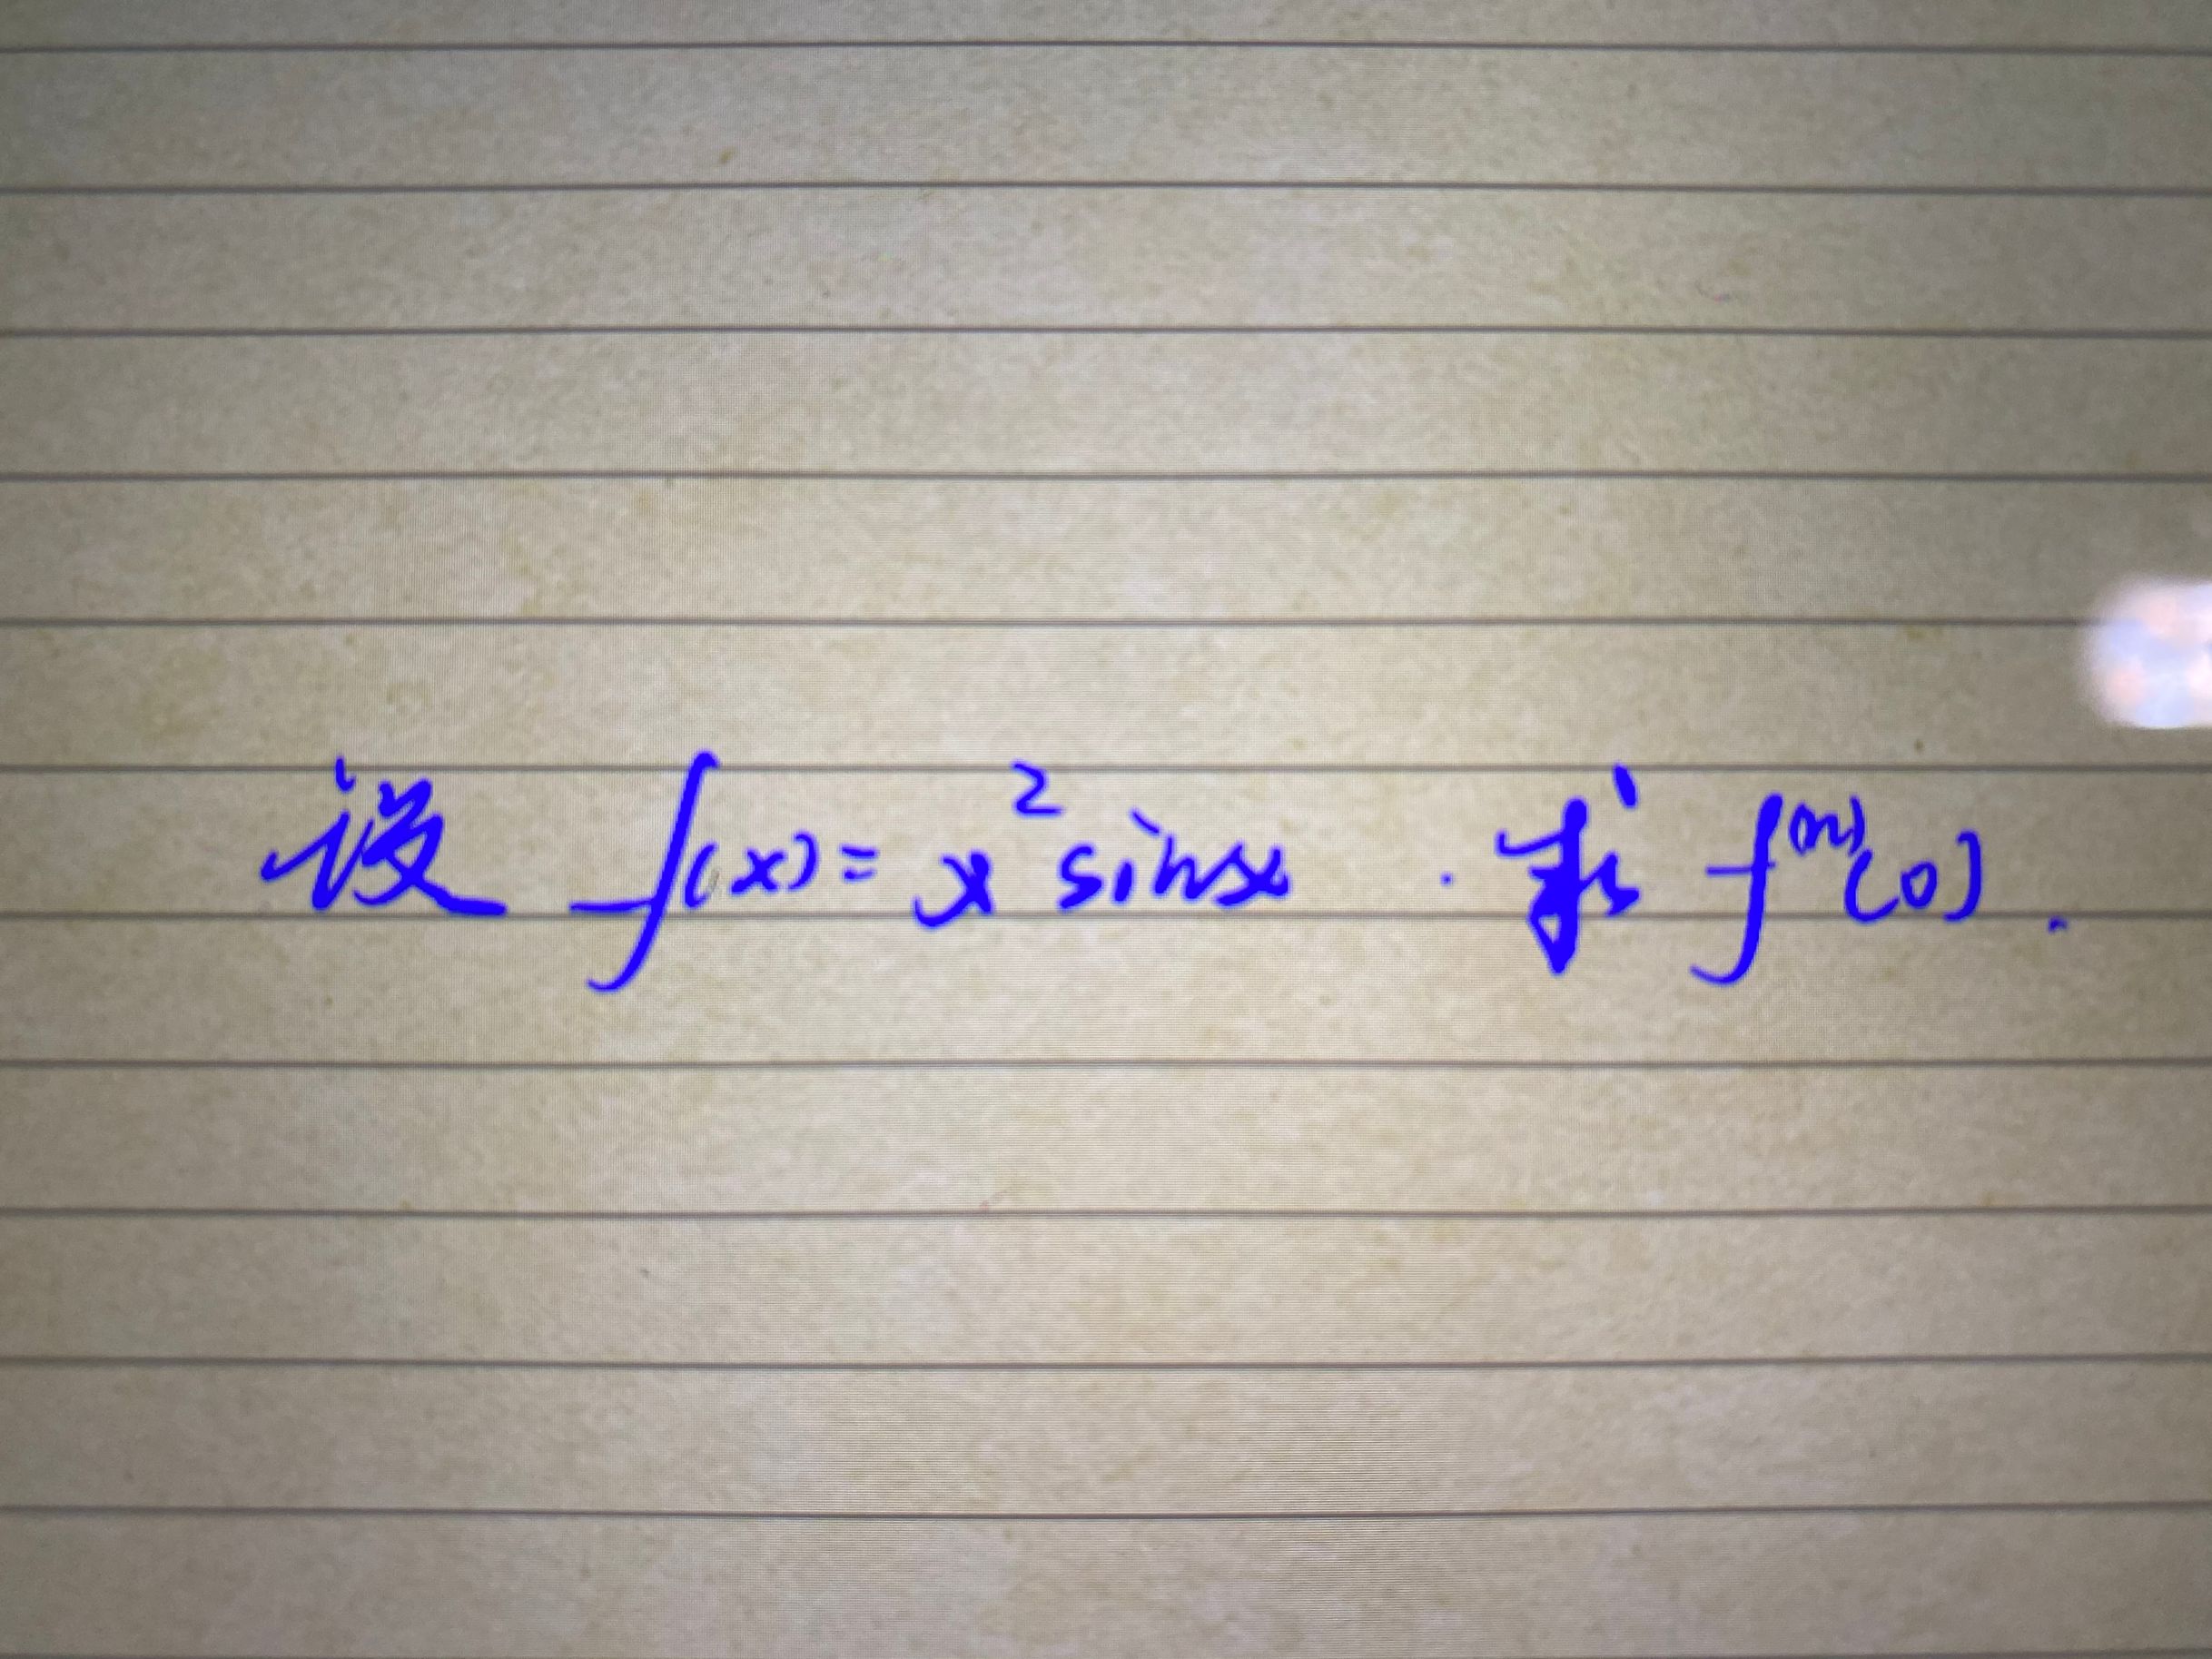 设 f(x) = x² sinx . 求 f⁽ⁿ⁾(0) .